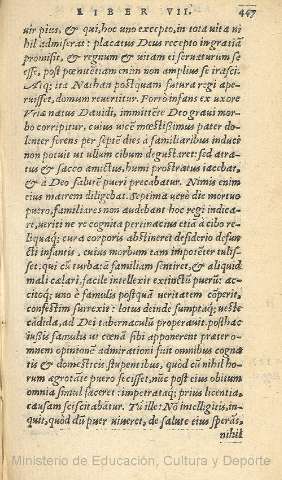 LIBER VII. 447
uir pius, & qui, hoc uno excepto, in tota uita ni
hil admiserat: placatus Deus recepto in gratiã
promisit, & regnum & uitam ei seruaturum se
esse, post pœnitentiam enim non amplius se irasci.
Atq; ita Nathan postquam futura regi ape-
ruisset, domum reuertitur. Porro infans ex uxore
Vriæ natus Dauidi, immittẽte Deo graui mor-
bo corripitur, cuius uicẽ mœstissimus pater do-
lenter ferens per septẽ dies a familiaribus induci
non potuit ut ullum cibum degustaret: sed atra-
tus & sacco amictus, humi prostratus iacebat,
& à Deo salutẽ pueri precabatur. Nimis enim
eius matrem diligebat. Septima uerò die mortuo
puero, familiares non audebant hoc regi indica-
re, ueriti ne re cognita pertinacius etiã à cibo re-
liquaq; cura corporis abstineret desiderio defun
cti infantis, cuius morbum tam impotẽter tulis-
set. qui cũ turbatã familiam sentiret, & aliquid
mali calari, facile intellexit extinctũ puerũ: ac-
citoq; uno è famulis postquã ueritatem cõperit,
confestim surrexit: lotus deinde sumptaq; ueste
cãdida, ad Dei tabernaculũ properauit. posthac
iussis famulis ut cœnã sibi apponerent præter o-
mnem opinionẽ admirationi fuit omnibus cogna
tis & domesticis stupentibus, quod cũ nihil ho-
rum ægrotãte puero fecisset, nũc post eius obitum
omnia simul faceret: impetrataq; prius licentia,
causam sciscitabatur. Tũ ille: Nõ intelligitis, in-
quit, quòd dũ puer uiueret, de salute eius sperãs,
nihil
Ministerio de Educación, Cultura y Deporte